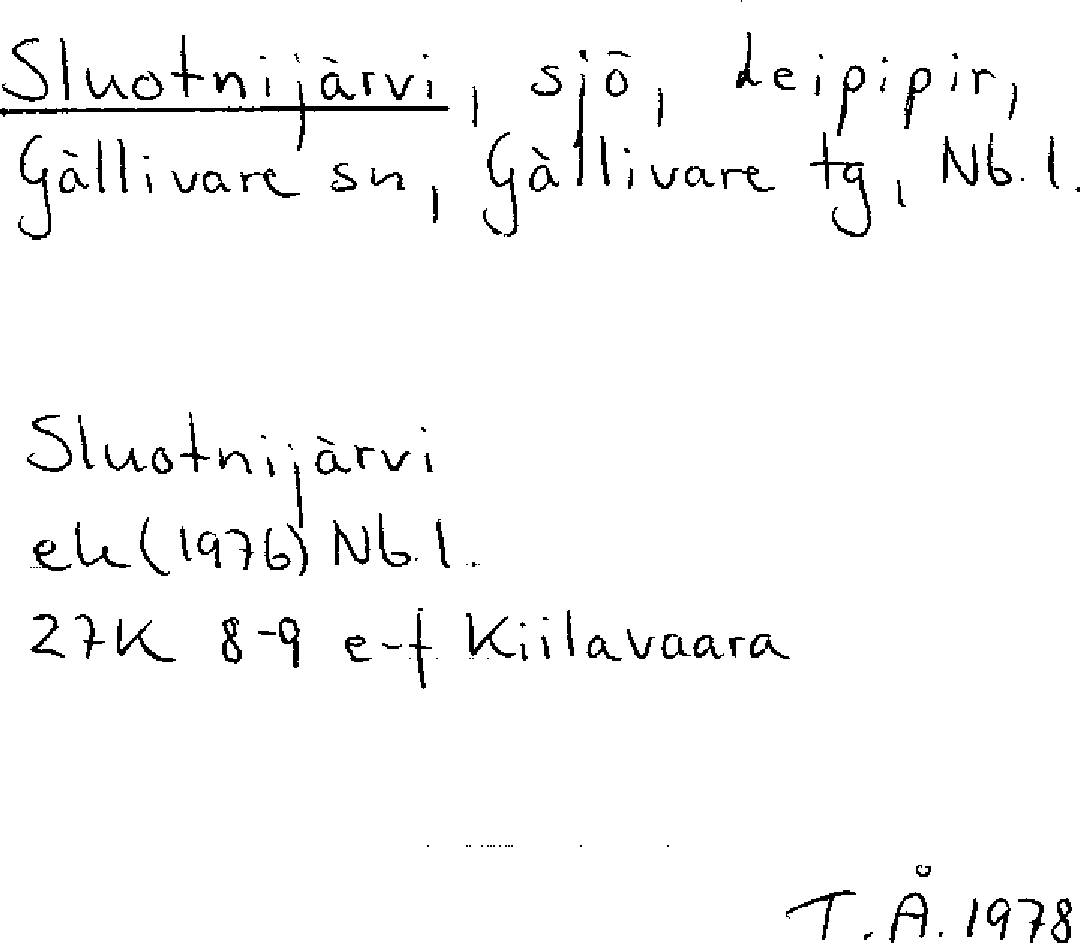 Sluotnijärvi, sjö, Leipipir,
Gällivare sn, Gällivare tg, Nb. l.
Sluotnijärvi
ek (1976) Nb. l.
27K 8-9 e-f Kiilavaara
T. Å. 1978